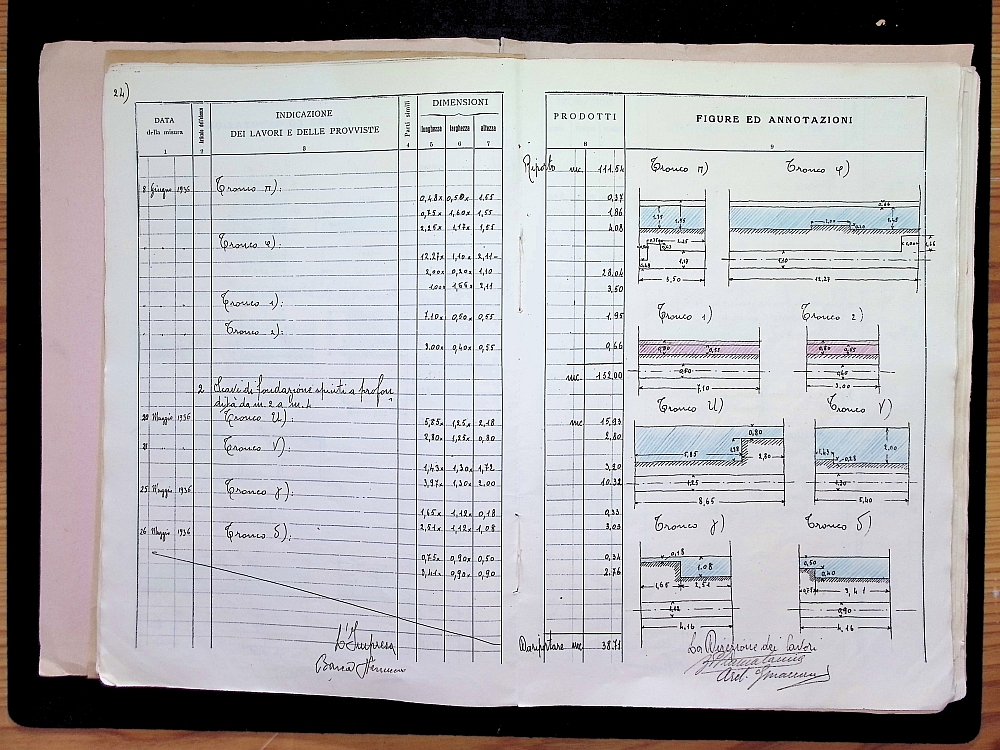 24)
DATA
della misura
Articolo dell'elenco
INDICAZIONE
DEI LAVORI E DELLE PROVVISTE
Parti simili
DIMENSIONI
lunghezza larghezza altezza
1 2 3 4 5 6 7
8 Giugno 1936 Tronco π):
0,48x 0,50x 1,55
0,75x 1,60x 1,55
2,25x 1,17x 1,55
Tronco φ):
12.27x 1,10x 2,11
2,00x 0,20x 1,10
2,11
Tronco 1):
7.10x 0,50x 0,55
Tronco 2):
3.00x 0,40x 0,55
2 Scavi di fondazione spinti a profon
dità da m. 2 a m. 4
20 Maggio 1936 Tronco U):
5,85x 1,25x 2,18
2,80x 1,25x 0,80
Tronco V).
1,43x 1,30x 1,72
3,97x 1,30x 2.00
25 Maggio 1936 Tronco γ):
1,65x 1,12x 0,18
2,51x 1,12x 1,08
26 Maggio 1936 Tronco δ):
0,75x 0,90x 0,50
3,41x 0,90x 0,90
L'Impresa
PRODOTTI
FIGURE ED ANNOTAZIONI
8 9
Riporto mc. 111.54
0,37
1,86
4,08
28,04
3,50
1,95
0,66
mc. 152,00
mc 15,93
2,80
3,20
10.32
0,33
3,03
0,34
2,76
Da riportare mc 38.71
Tronco π) Tronco φ)
1,55 1,55
1,17
3,50
2,00 0,20
1,10
12,27
Tronco 1) Tronco 2)
0,55
0,50
7,10
0,55
3,00
Tronco U) Tronco V)
0,80
5,85 2,80
1,25
8,65
2,00
1,43 0,28
1,30
5,40
Tronco γ) Tronco δ)
0,18
1,08
1,65 2,51
1,12
4,16
0,50
0,40
0,75 3,41
0,90
4,16
La Direzione dei lavori